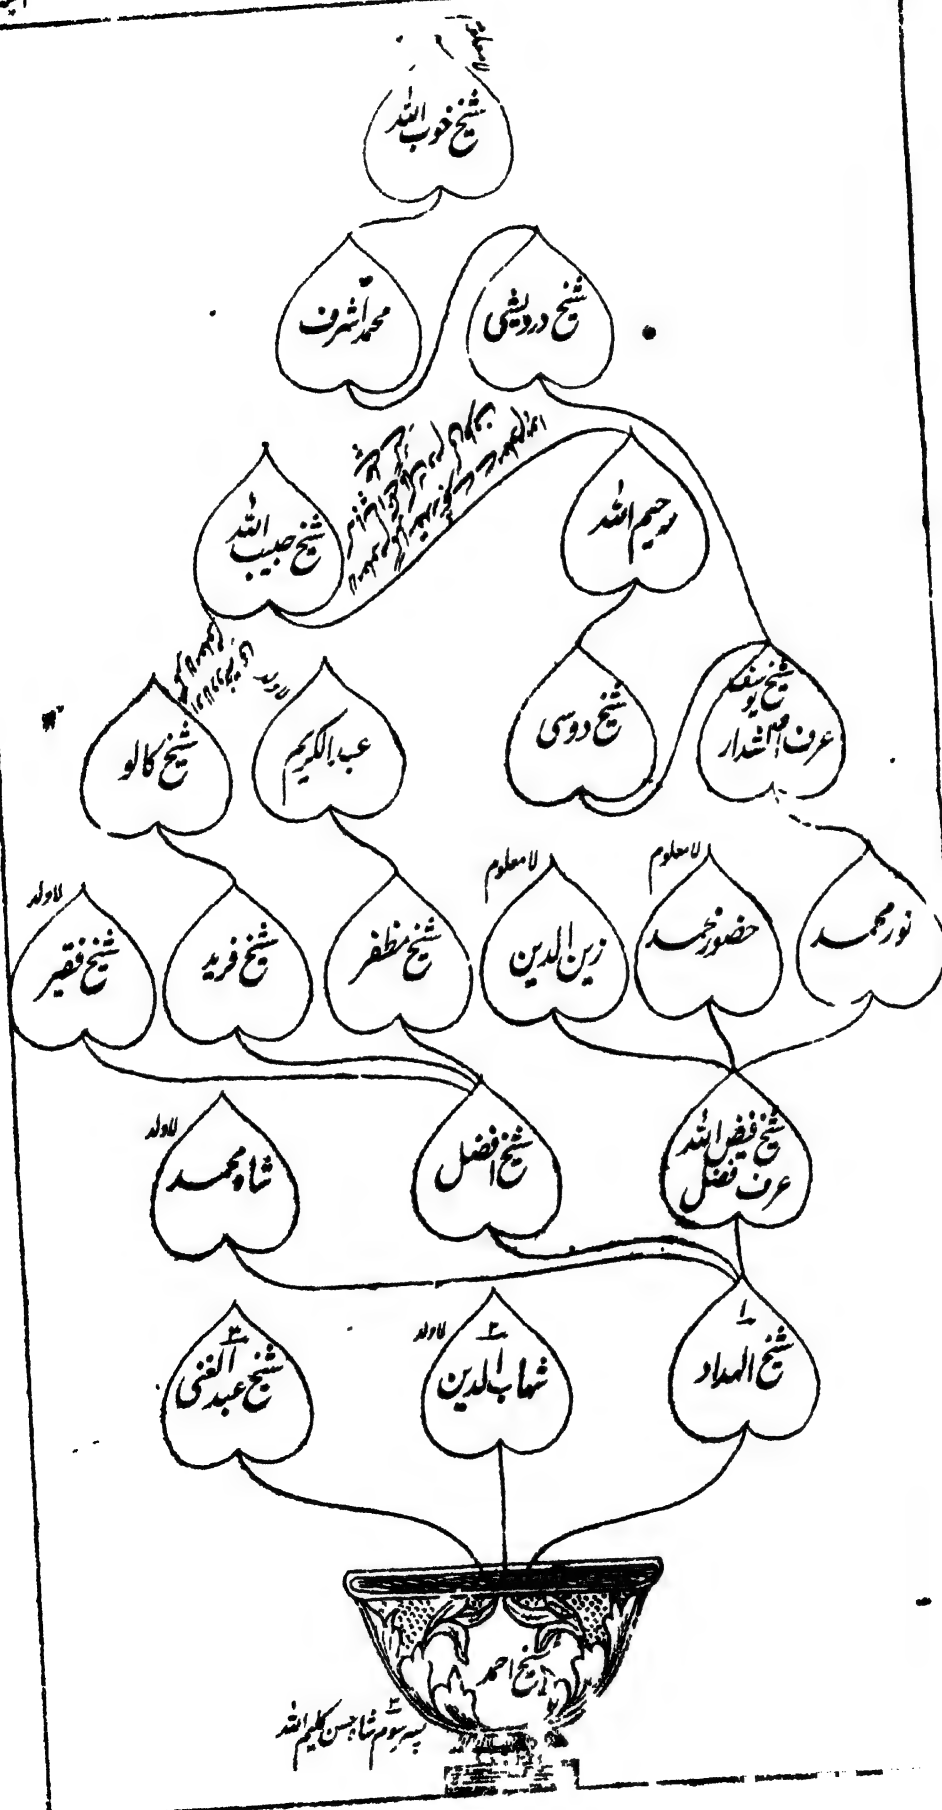 لا معلوم
شیخ خوب اللہ
محمد اشرف
شیخ درویشی
شیخ حبیب اللہ
رحیم اللہ
لا ولد
شیخ کالو
عبد الکریم
شیخ دوسی
شیخ یوسف
عرف
لا ولد
لا معلوم
لا معلوم
شیخ فقیر
شیخ فرید
شیخ مظفر
زین الدین
حضور محمد
نور محمد
لا ولد
شاہ محمد
شیخ افضل
شیخ فیض اللہ
عرف فضل
۳
شیخ عبد الغنی
لا ولد
۲
شہاب الدین
۱
شیخ الہداد
شیخ احمد
پسر سوم شاہ حسن کلیم اللہ